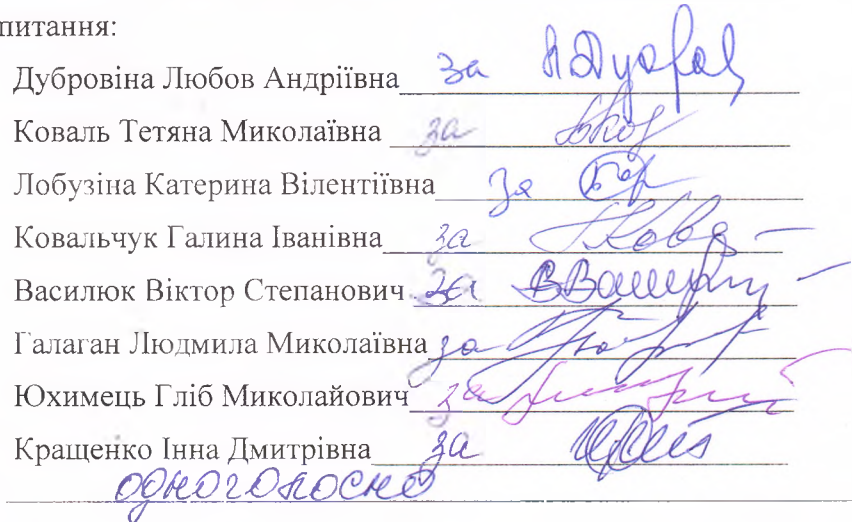 питання:
Дубровіна Любов Андріївна за
Коваль Тетяна Миколаївна за
Лобузіна Катерина Вілентіївна за
Ковальчук Галина Іванівна за
Василюк Віктор Степанович за
Галаган Людмила Миколаївна за
Юхимець Гліб Миколайович за
Кращенко Інна Дмитрівна за
одноголосно